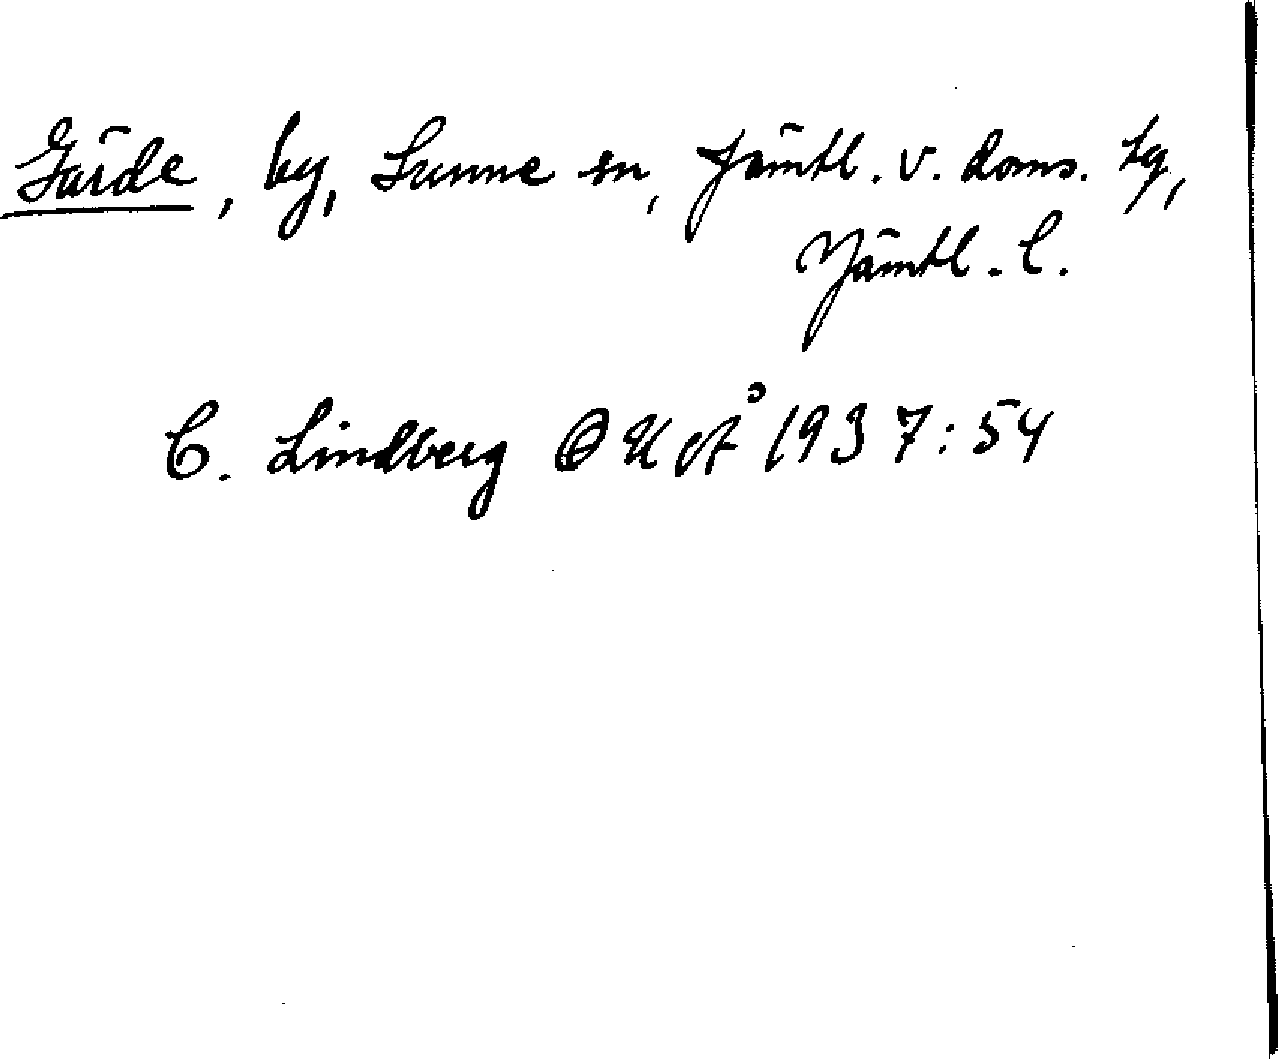 Gärde, by, Sunne sn, Jämtl. v. doms. tg,
Jämtl. l.
C. Lindberg OUoÅ 1937:54